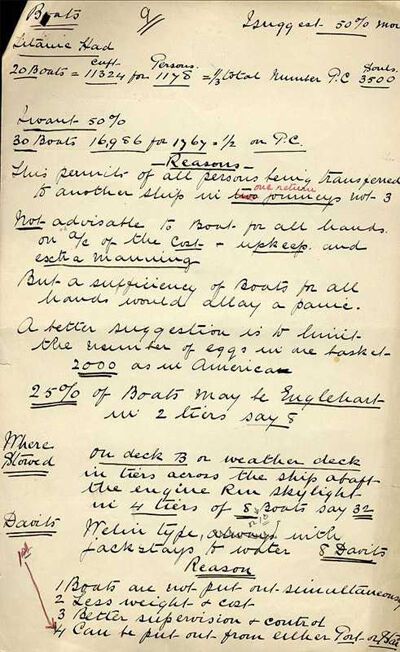 Boats 9 I suggest 50% mor
Titanic Had
cuft Persons Souls
20 Boats = 11324 for 1178 = 1/3 total Number P.C 3500
I want 50%
30 Boats 16986 for 1767 = 1/2 on P.C.
Reasons
This permits of all persons being transferred
one return
to another ship in two journeys not 3
Not advisable to Boat for all hands.
on a/c of the Cost & upkeep and
extra manning
But a sufficiency of Boats for all
hands would allay a panic.
A better suggestion is to limit
the number of eggs in one basket
2000 as in America
25% of Boats may be Englehart
in 2 tiers say 8
Where
Stowed
On deck B or weather deck
in tiers across the ship abaft
the engine Rm skylight
in 4 tiers of 8 Boats say 32
Davits
Welin type, always with
Jackstays to water 8 Davits
Reason
1 Boats are not put out simultaneously
2 Less weight & cost
3 Better supervision & control
4 Can be put out from either Port or Star